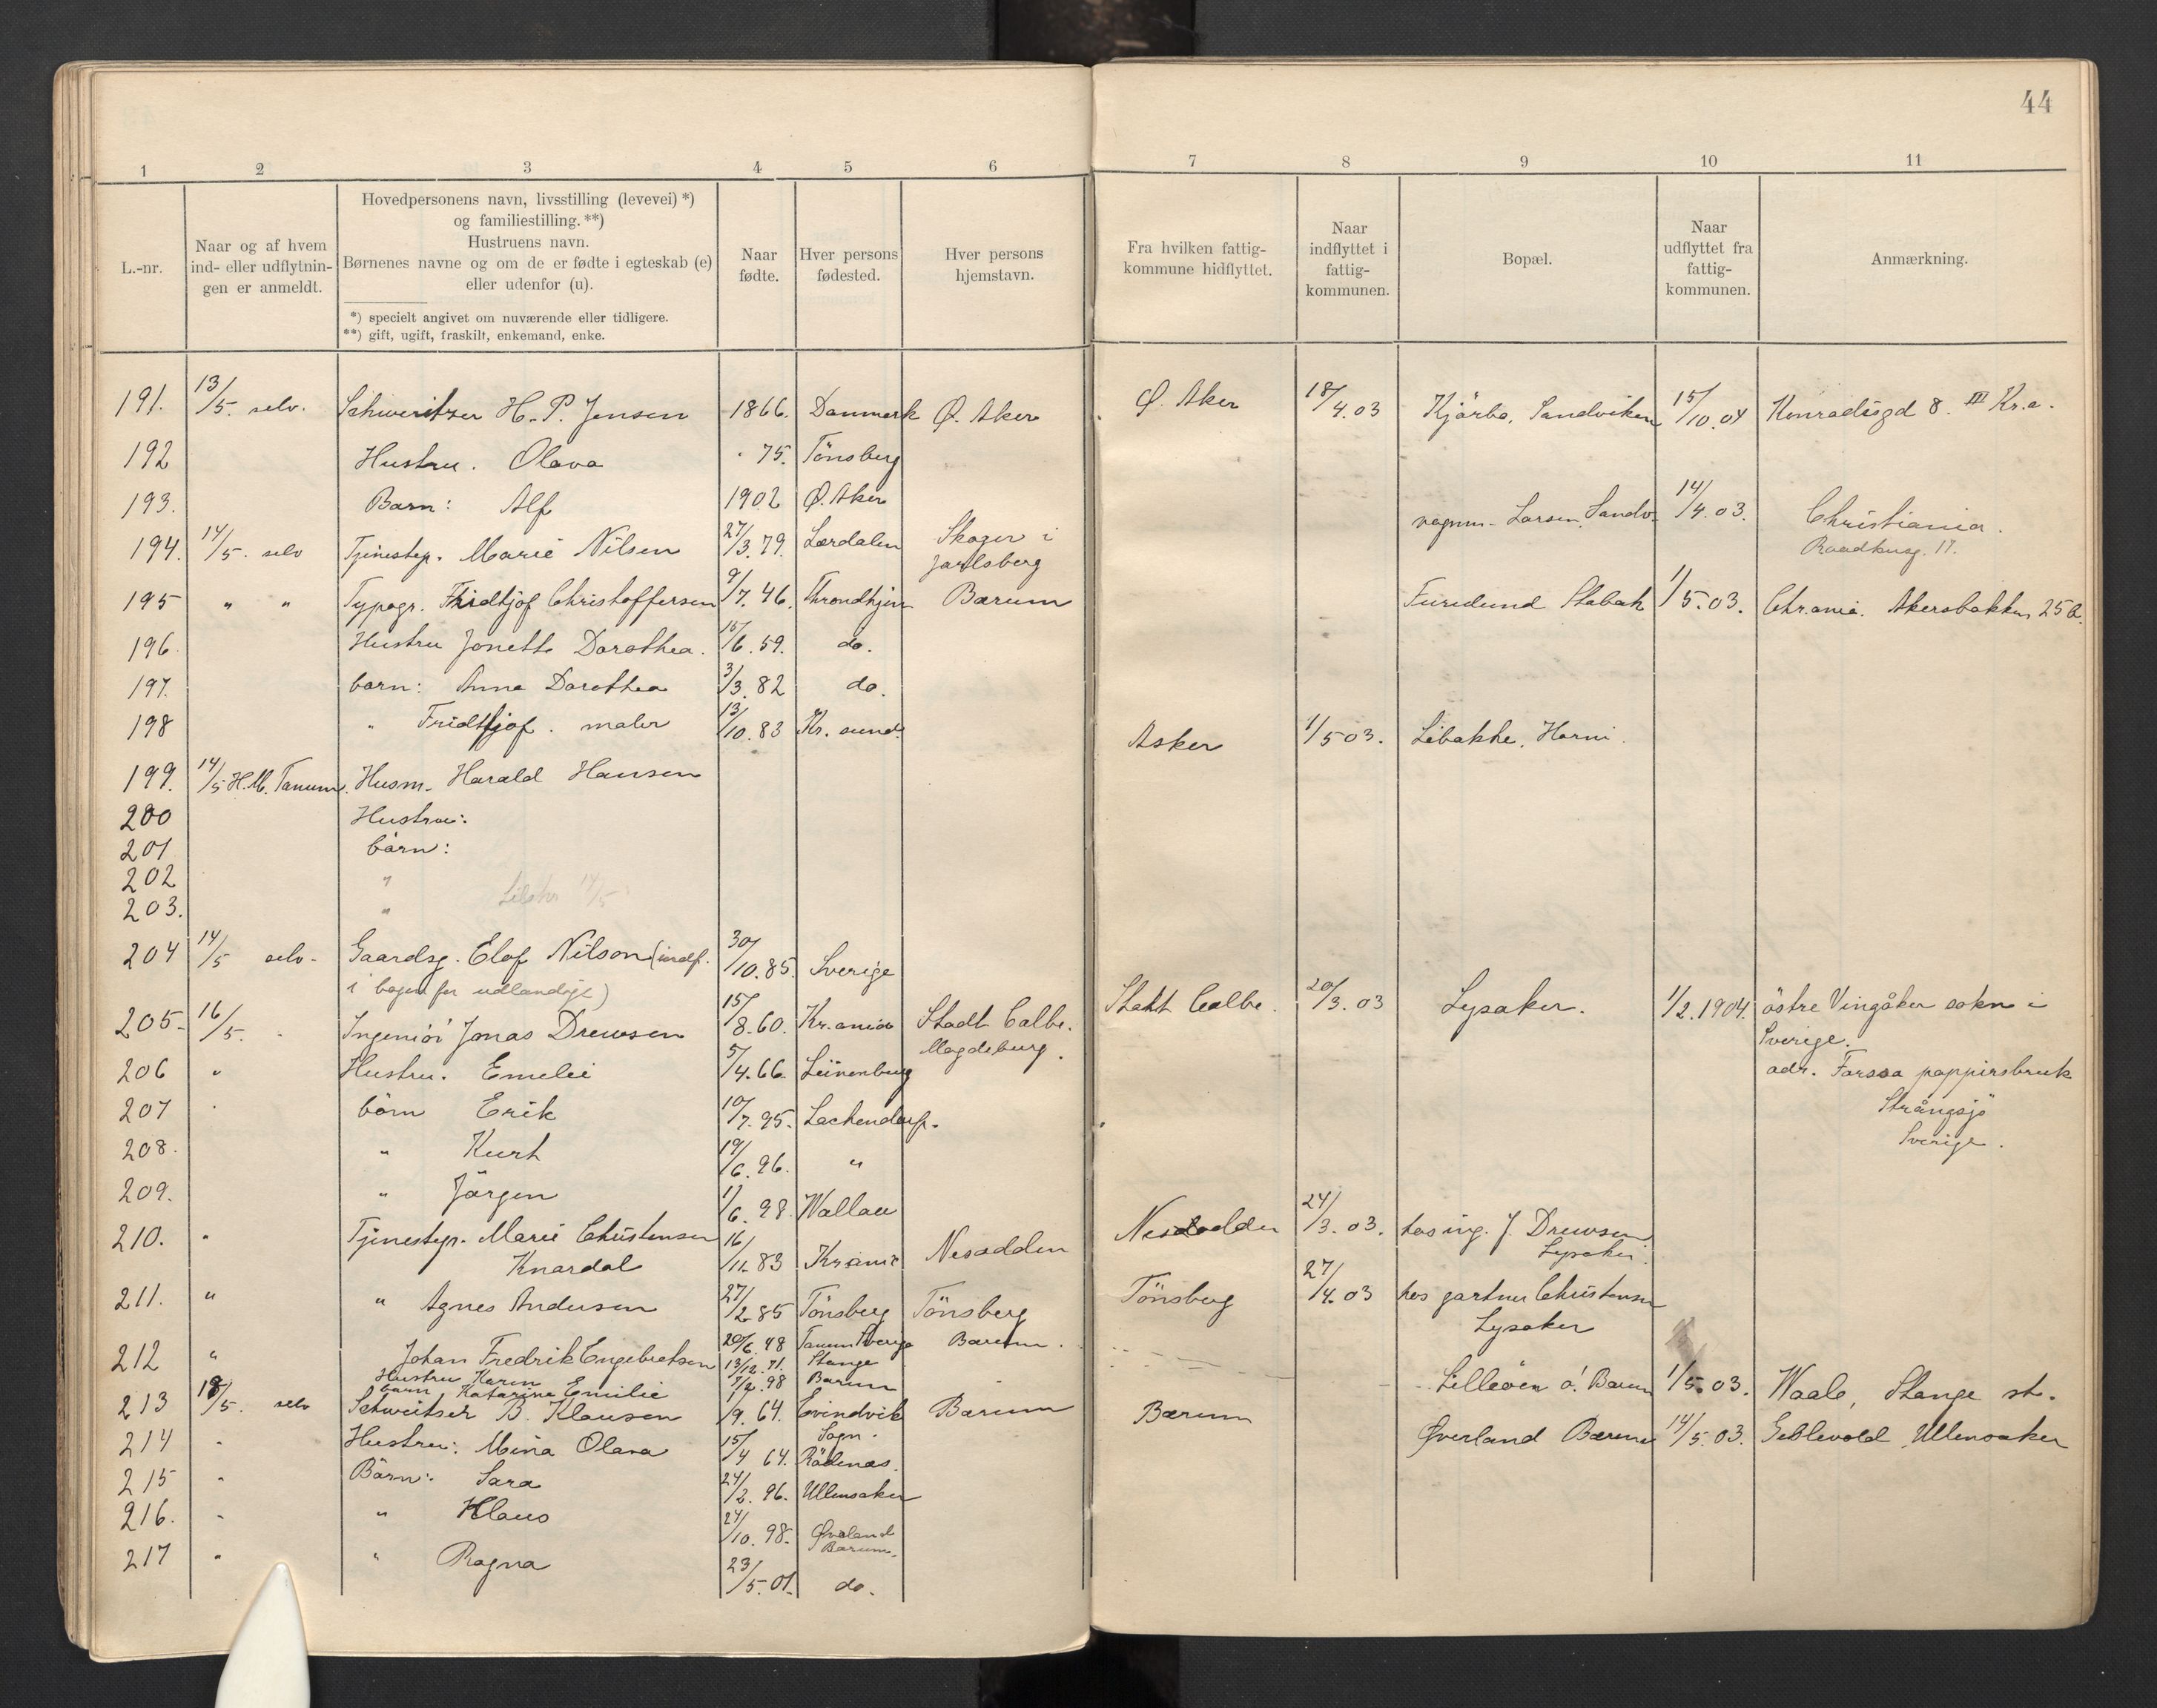 44
1 2 3 4 5 6 7 8 9 10 11
L.-nr.
Naar og af hvem
ind- eller udflytnin-
gen er anmeldt.
Hovedpersonens navn, livsstilling (levevei) *)
og familiestilling. **)
Hustruens navn.
Børnenes navne og om de er fødte i egteskab (e)
eller udenfor (u).
*) specielt angivet om nuværende eller tidligere.
**) gift, ugift, fraskilt, enkemand, enke.
Naar
fødte.
Hver persons
fødested.
Hver persons
hjemstavn.
Fra hvilken fattig-
kommune hidflyttet.
Naar
indflyttet i
fattig-
kommunen.
Bopæl.
Naar
udflyttet fra
fattig-
kommunen.
Anmærkning.
191. 13/5. selv. Schweitzer H. P. Jensen 1866. Danmark Ø. Aker Ø. Aker 18/4.03 Kjørbo, Sandviken 15/10.04 Konradisgd 8. III Kr.a.
192 Hustru. Olava " 75. Tönsberg
193. Barn: Alf 1902 Ø. Aker
194. 14/5. selv Tjinestep. Marie Nilsen 27/3.79. Lærdalen Skoger i
Jarlsberg
vognm. Larsen, Sandv. 14/4.03. Christiania.
Raadhusg. 17.
195 " " Typogr. Fridtjof Christoffersen 9/7.46. Throndhjem Bærum Furulund Stabæk 1/5.03. Chr.ania. Akersbakken 25 b.
196 Hustru Jonette Dorothea. 15/6.59. do.
197. barn: Anna Dorothea 3/3.82 do.
198 " Fridtjof. maler 13/10.83 Kr. sund.
199. 14/5 H.M. Tanum. Husm. Harald Hansen Asker 1/5 03. Libakke, Horni.
200 Hustru:
201 børn:
202 "
203. "
204 14/5 selv. Gaardsg. Elof Nilson (indf.
i bogen for udlændige)
30/10.85. Sverige
205. 16/5. " Ingeniør Jonas Drewsen 15/8.60. Kr.ania Stadt Calbe.
Magdeburg.
Stadt Calbe. 20/3.03 Lysaker. 1/2.1904. östre Vingåker sokn i
Sverige.
adr. Forssa pappirsbruk
Strångsjö
Sverige.
206 " Hustru. Emilie 5/4.66. Lünenburg
207 " börn Erik 10/7.95. Lachendorf.
208. " Kurt 19/6.96. "
209. " Jörgen 1/6.98. Wallau
210. " Tjinestep. Marie Christensen
Knardal
16/11.83 Kr.ania Nesodden Nesodden 24/3.03. hos ing. J. Drewsen
Lysaker.
211. " " Agnes Andersen 27/2.85 Tönsberg Tönsberg Tönsberg 27/4.03 hos gartner Christensen
Lysaker
212 " Johan Fredrik Engebretsen 20/6.48 Tanum Sverige Bærum.
Hustru Karen 13/12.71. Stange
barn, Katarina Emilie 7/2.98 Bærum
Lilleöen ö. Bærum 1/5.03. Waale, Stange st.
213 18/5. selv Schweitser B. Klausen 1/9.64. Evindvik
Sogn.
Bærum Bærum Øverland Bærum 14/5.03. Ullensaker
214 " Hustru: Mina Olava 15/4 64. Rödenæs.
215 " Börn: Sara 24/2.96. Ullensaker
216. " " Klaus 24/10.98. Øverland
Bærum.
217 " " Ragna 23/5.01. do.